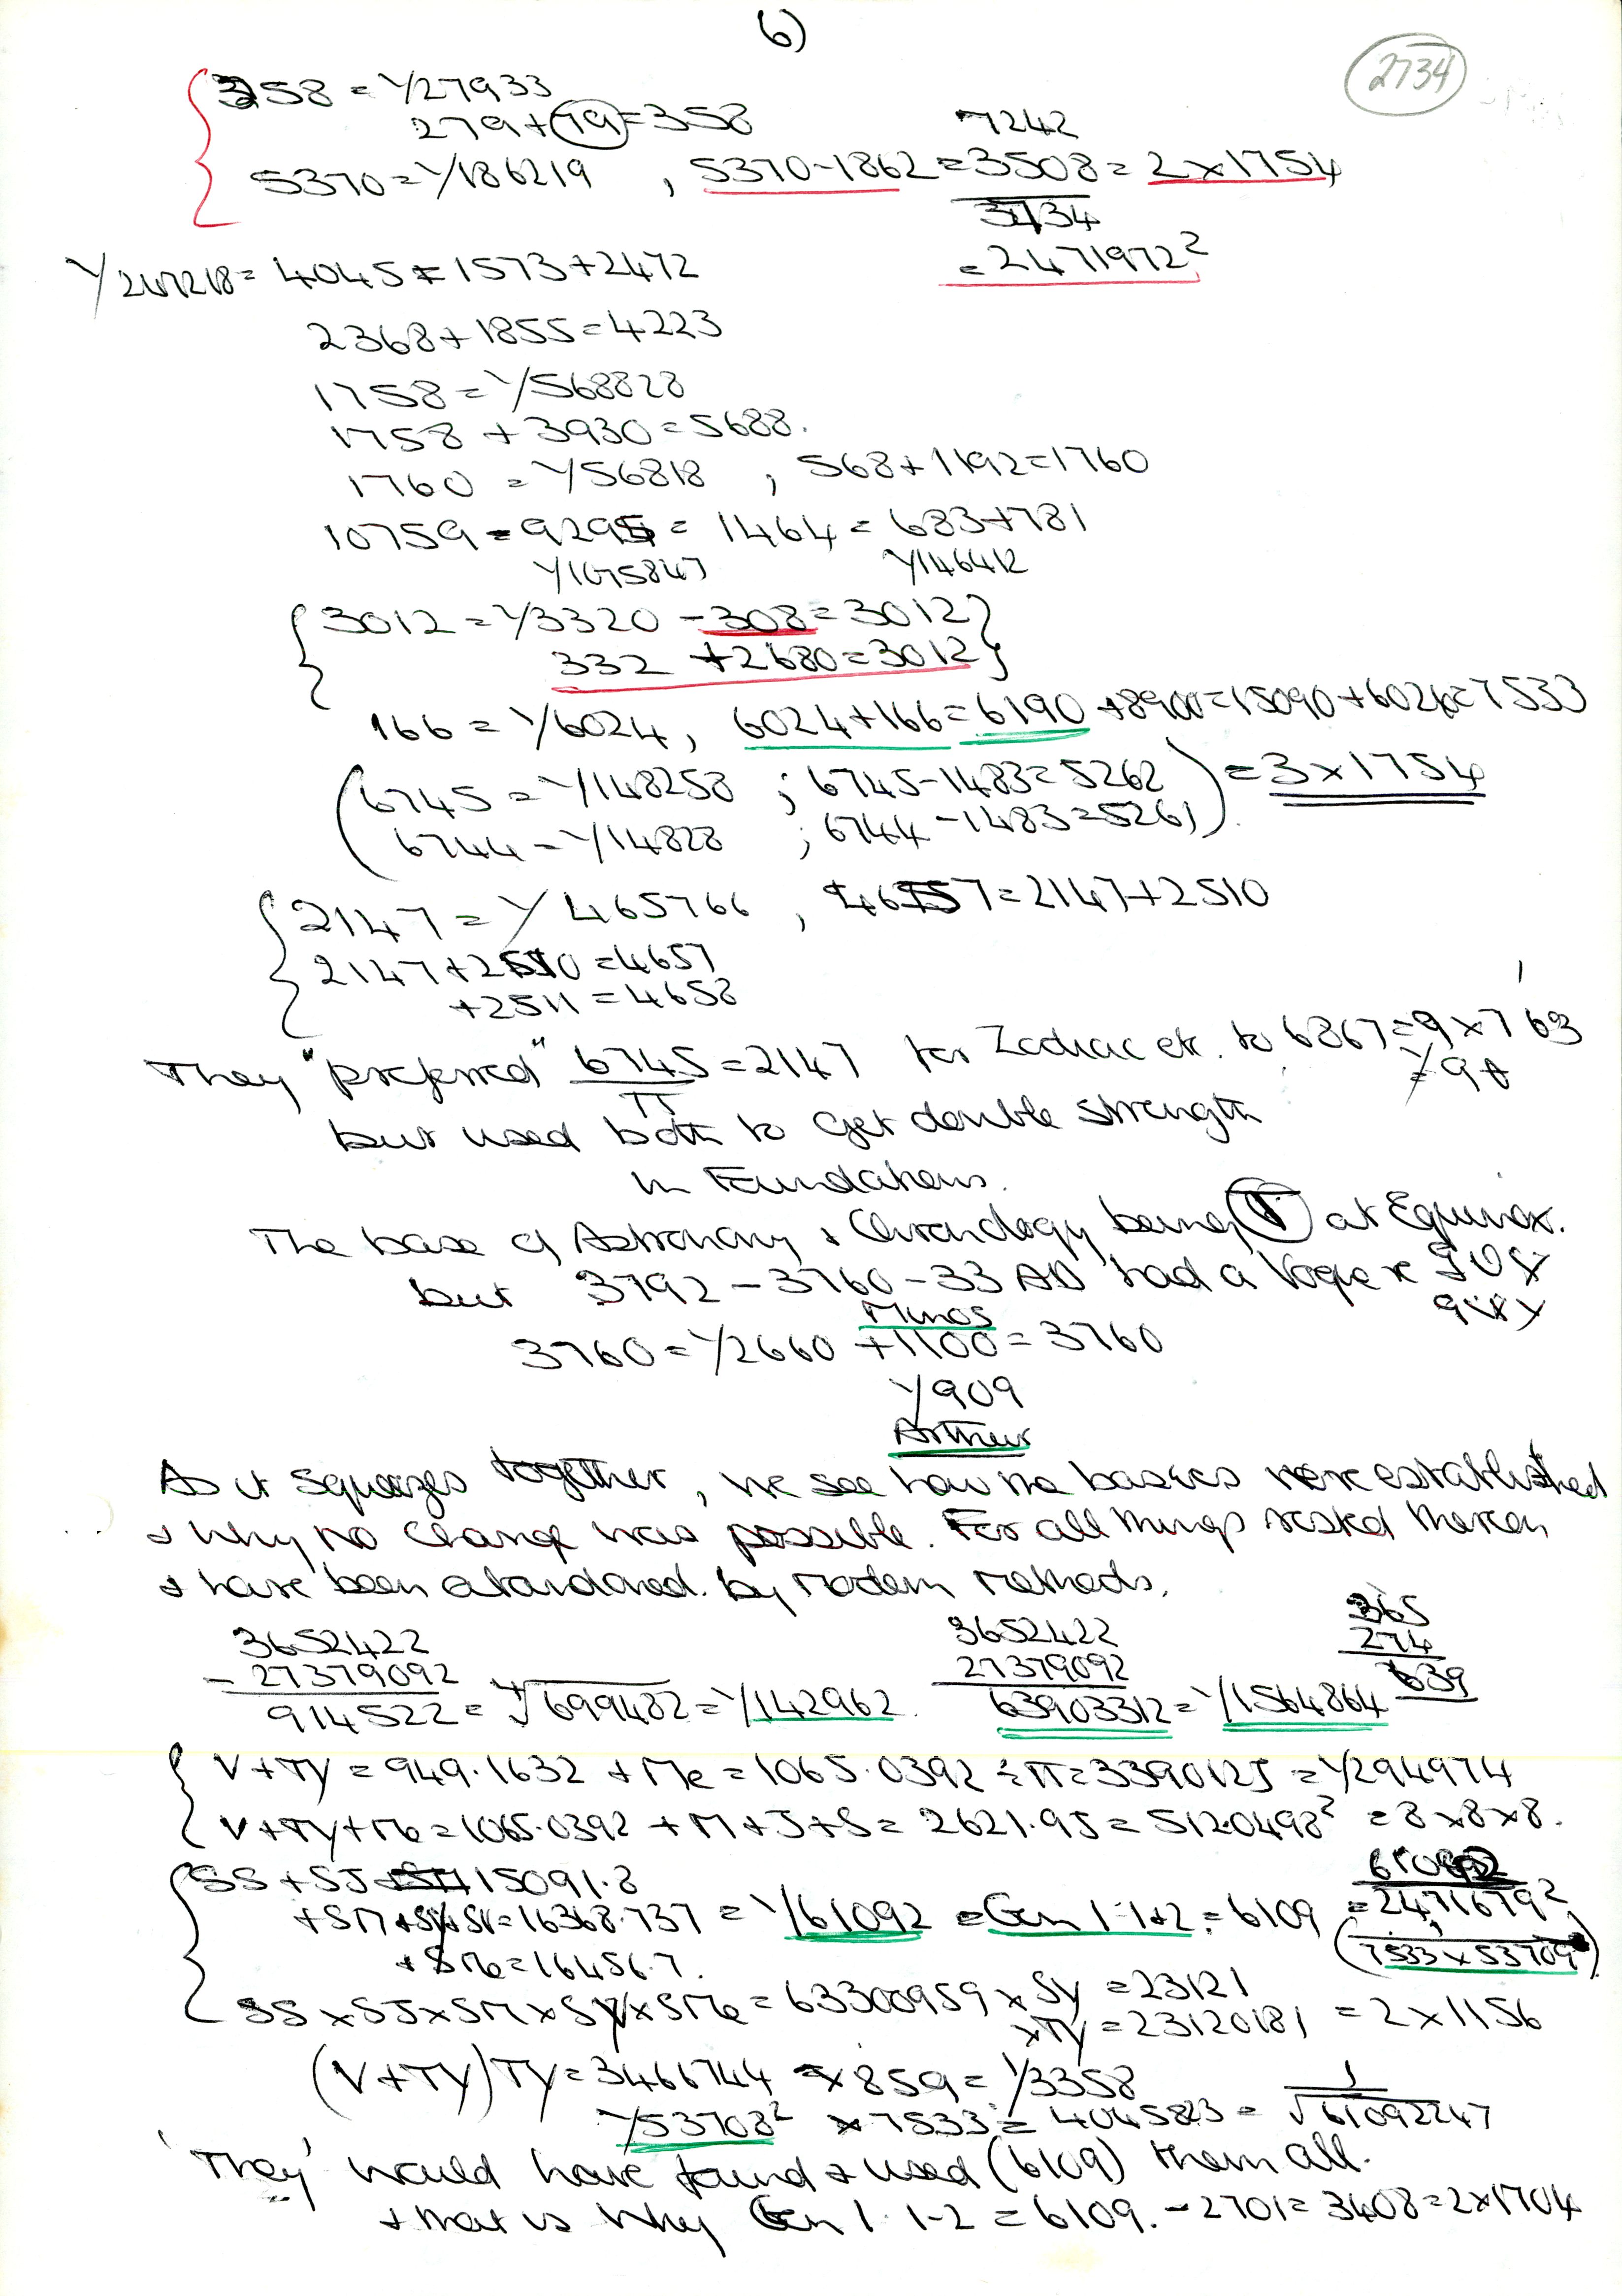 6)
2734
358 = Y27933
279 + 79 = 358
7242
5370 = Y186219 , 5370 - 1862 = 3508 = 2 x 1754
3734
= 2471972²
Y247218 = 4045 = 1573 + 2472
2368 + 1855 = 4223
1758 = Y568828
1758 + 3930 = 5688.
1760 = Y56818 ; 568 + 1192 = 1760
10759 - 9295 = 1464 = 683 + 781
Y1075847 Y146412
3012 = Y3320 - 308 = 3012
332 + 2680 = 3012
166 = Y6024, 6024 + 166 = 6190 + 8900 = 15090 + 6026 = 7533
(6745 = Y148258 ; 6745 - 1483 = 5262) = 3 x 1754
6744 = Y14828 ; 6744 - 1483 = 5261).
2147 = Y465766 , 4657 = 2147 + 2510
2147 + 2510 = 4657
+ 2511 = 4658
They "preferred" 6745/π = 2147 for Zodiac etc. to 6867 = 9 x 763
but used both to get double strength
in Foundations.
The base of Astronomy & Chronology being at Equinox.
but 3792 - 3760 - 33 AD had a Vogue
Minos
3760 = Y2660 + 1100 = 3760
Y909
Arthur
As it squeezes together, we see how the basics were established
& why no change was possible. For all things rested thereon
& have been abandoned by modern methods.
3652422 3652422 365
- 27379092 27379092 274
914522 = ∜699482 = Y142962. 63903312 = Y1564864 639
V + TY = 949.1632 + Me = 1065.0392 ÷ π = 3390125 = Y294974
V + TY + Me = 1065.0392 + M + J + S = 2621.95 = 5120498² = 8 x 8 x 8.
SS + SJ 15091.8
+ SM + SV = 16368.737 = Y61092 = Gen 1-1+2 = 6109 = 24716792²
(7533 x 53709)
+ SMe = 16456.7.
SS x SJ x SM x SV x SMe = 63300959 x SY = 23121
x TY = 23120181 = 2 x 1156
(V + TY) TY = 3466744 x 859 = Y3358
Y53708² x 7533 = 4045823 = 1/√61092247
'They' would have found & used (6109) them all.
& that is why Gen 1. 1-2 = 6109. - 2701 = 3408 = 2 x 1704